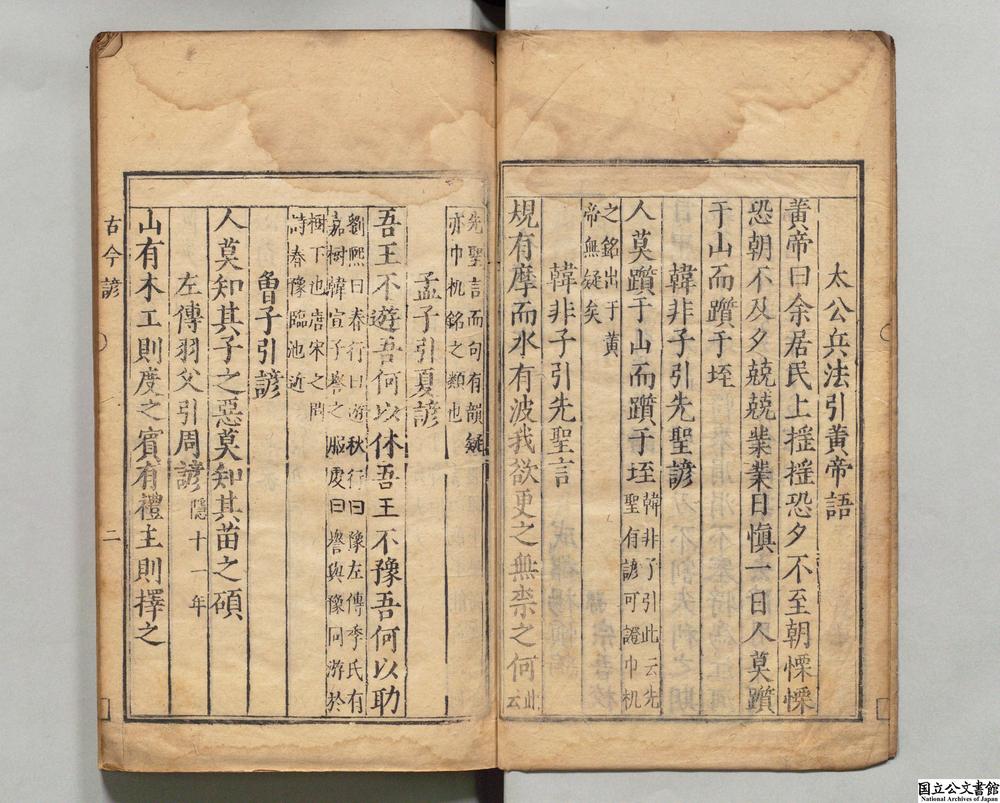 太公兵法引黃帝語
黃帝曰余居民上揺揺恐夕不至朝慄慄
恐朝不及夕兢兢業業日慎一日人莫躓
于山而躓于垤
韓非子引先聖諺
人莫躓于山而躓于垤
韓非子引此云先
聖有諺可證巾机
之銘出于黃
帝無疑矣
韓非子引先聖言
規有摩而水有波我欲更之無柰之何
此
云
先聖言而句有韻疑
亦巾机銘之類也
孟子引夏諺
吾王不遊吾何以休吾王不豫吾何以助
劉熙曰春行曰遊秋行曰豫左傳季氏有
嘉樹韓宣子譽之服虔曰譽與豫同游於
樹下也唐宋之間
詩春豫臨池近
魯子引諺
人莫知其子之惡莫知其苗之碩
左傳羽父引周諺 隱十一年
山有木工則度之賓有禮主則擇之
古今諺 二
国立公文書館
National Archives of Japan